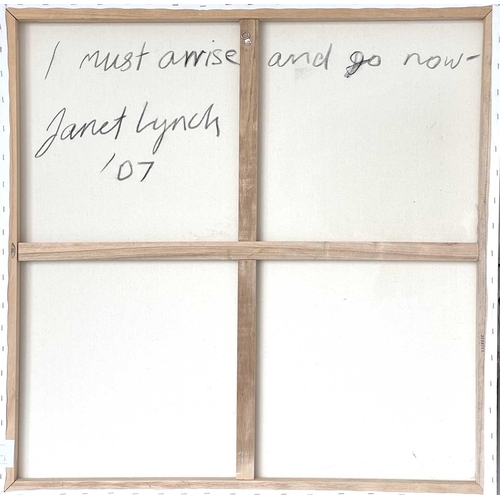 I must arrise and go now-
Janet Lynch
'07